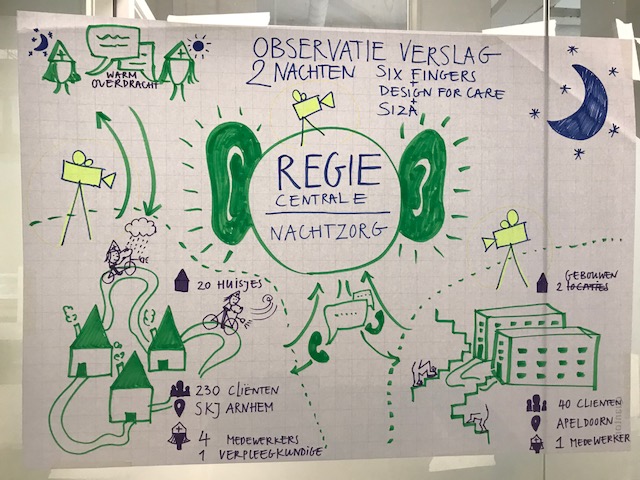 OBSERVATIE VERSLAG
2 NACHTEN
SIX FINGERS
+
DESIGN FOR CARE
+
SIZA
WARM
OVERDRACHT
REGIE
CENTRALE
NACHTZORG
20 HUISJES
GEBOUWEN
2 LOCATIES
230 CLIËNTEN
SKJ ARNHEM
4 MEDEWERKERS
1 VERPLEEGKUNDIGE
40 CLIENTEN
APELDOORN
1 MEDEWERKER